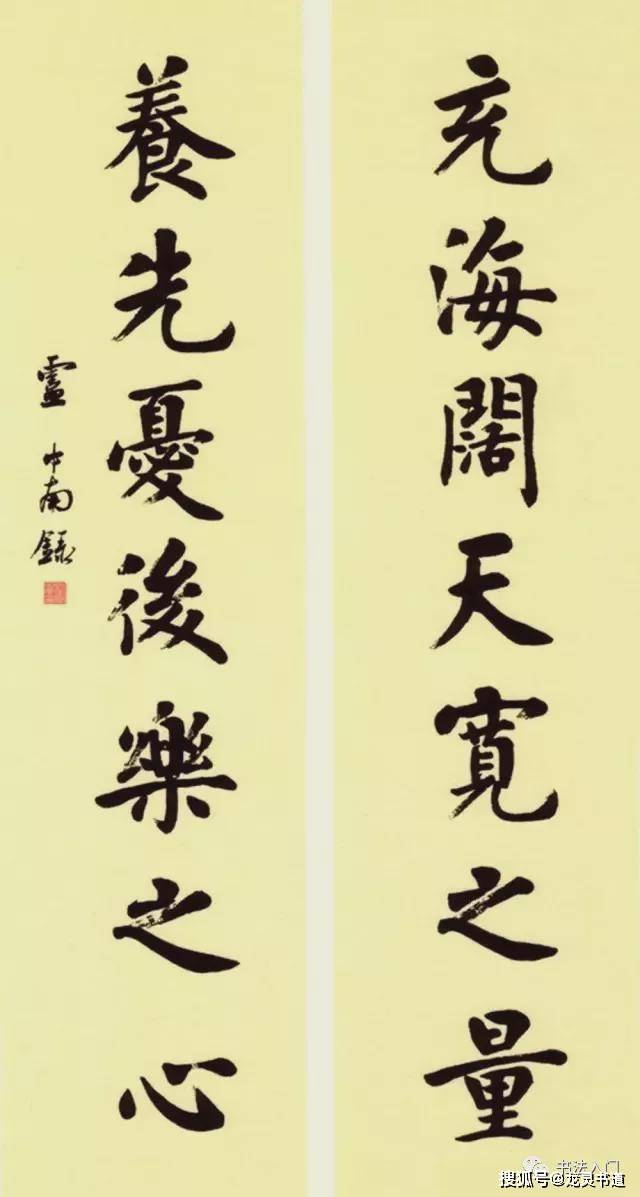 充海闊天寬之量
養先憂後樂之心
盧中南錄
书法入门
搜狐号@龙灵书道